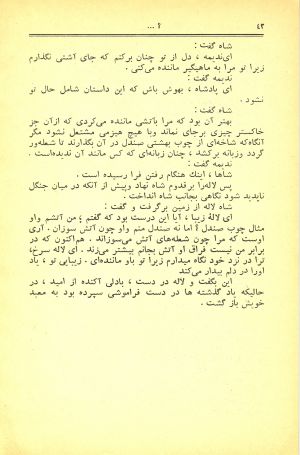 ۴۳
؟ ...
شاه گفت :
ای‌ندیمه ، دل از تو چنان برکنم که جای آشتی نگذارم
زیرا تو مرا به ماهیگیر ماننده می‌کنی .
ندیمه گفت :
ای پادشاه ، بهوش باش که این داستان شامل حال تو
نشود .
شاه گفت :
بهتر آن بود که مرا بآتشی ماننده می‌کردی که ازآن جز
خاکستر چیزی برجای نماند وبا هیچ هیزمی مشتعل نشود مگر
آنگاه‌که شاخه‌ای از چوب بهشتی صندل در آن بگذارند تا شعله‌ور
گردد وزبانه برکشد ، چنان زبانه‌ای که کس مانند آن ندیده‌است .
ندیمه گفت :
شاها ، اینک هنگام رفتن فرا رسیده است .
پس لاله‌را برقدوم شاه نهاد وپیش از آنکه در میان جنگل
ناپدید شود نگاهی بجانب شاه انداخت .
شاه لاله از زمین برگرفت و گفت :
ای لاله زیبا ، آیا این درست بود که گفتم ؛ من آتشم واو
مثال چوب صندل ؟ اما نه صندل منم واو چون آتش سوزان . آری
اوست که مرا چون شعله‌های آتش می‌سوزاند . هم‌اکنون که در
برابر من نیست فراق او آتش بجانم بیشتر می‌زند . ای لاله سرخ،
ترا در نزد خود نگاه میدارم زیرا تو باو ماننده‌ای . زیبایی تو ، یاد
اورا در دلم بیدار می‌کند
این بگفت و لاله در دست ، بادلی آکنده از امید ، در
حالیکه یاد گذشته ها در دست فراموشی سپرده بود به معبد
خویش باز گشت .